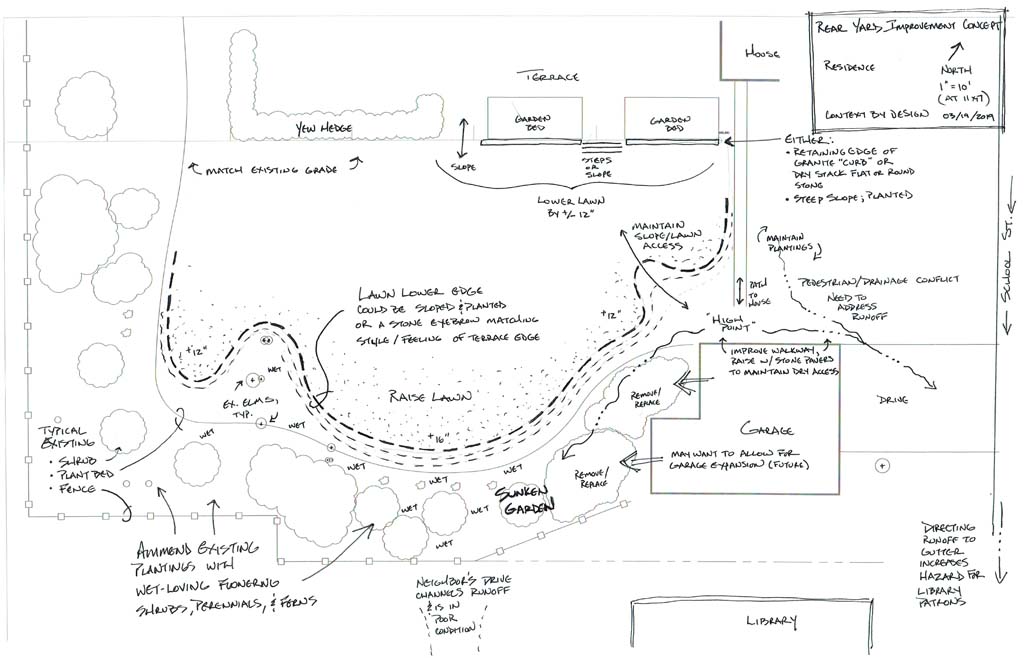 REAR YARD IMPROVEMENT CONCEPT
RESIDENCE
NORTH
1" = 10'
(AT 11x17)
CONTEXT BY DESIGN 03/19/2019
HOUSE
TERRACE
GARDEN
BED
GARDEN
BED
YEW HEDGE
SLOPE
STEPS
OR
SLOPE
MATCH EXISTING GRADE
LOWER LAWN
BY +/- 12"
EITHER:
• RETAINING EDGE OF
GRANITE "CURB" OR
DRY STACK FLAT OR ROUND
STONE
• STEEP SLOPE; PLANTED
SCHOOL ST.
MAINTAIN
SLOPE/LAWN
ACCESS
MAINTAIN
PLANTINGS
PATH
TO
HOUSE
PEDESTRIAN/DRAINAGE CONFLICT
NEED TO
ADDRESS
RUNOFF
LAWN LOWER EDGE
COULD BE SLOPED & PLANTED
OR A STONE EYEBROW MATCHING
STYLE/FEELING OF TERRACE EDGE
+12"
+12"
"HIGH
POINT"
IMPROVE WALKWAY,
RAISE W/ STONE PAVERS
TO MAINTAIN DRY ACCESS
WET
EX. ELMS,
TYP.
RAISE LAWN
+16"
REMOVE/
REPLACE
DRIVE
GARAGE
MAY WANT TO ALLOW FOR
GARAGE EXPANSION (FUTURE)
REMOVE/
REPLACE
TYPICAL
EXISTING
• SHRUB
• PLANT BED
• FENCE
WET
WET
WET
WET
WET
WET
WET
WET
SUNKEN
GARDEN
AMMEND EXISTING
PLANTINGS WITH
WET-LOVING FLOWERING
SHRUBS, PERENNIALS, & FERNS
NEIGHBOR'S DRIVE
CHANNELS RUNOFF
& IS IN
POOR
CONDITION
LIBRARY
DIRECTING
RUNOFF TO
GUTTER
INCREASES
HAZARD FOR
LIBRARY
PATRONS